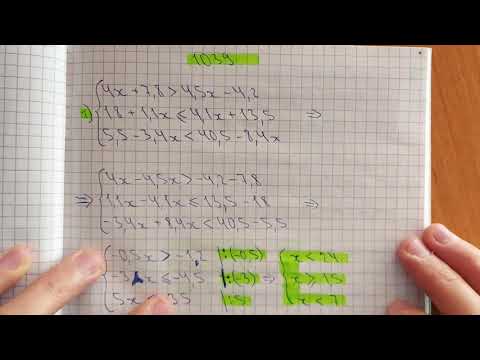 1039
4x + 7,8 > 4,5x - 4,2
1) 18 + 1,1x ≤ 4,1x + 13,5 ⇒
5,5 - 3,4x < 40,5 - 8,4x
⇒ 4x - 4,5x > -4,2 - 7,8
1,1x - 4,1x ≤ 13,5 - 18
-3,4x + 8,4x < 40,5 - 5,5
-0,5x > -12 |:(-0,5) x < 24
-3x ≤ -4,5 |:(-3) ⇒ x ≥ 1,5
5x < 35 |:5 x < 7